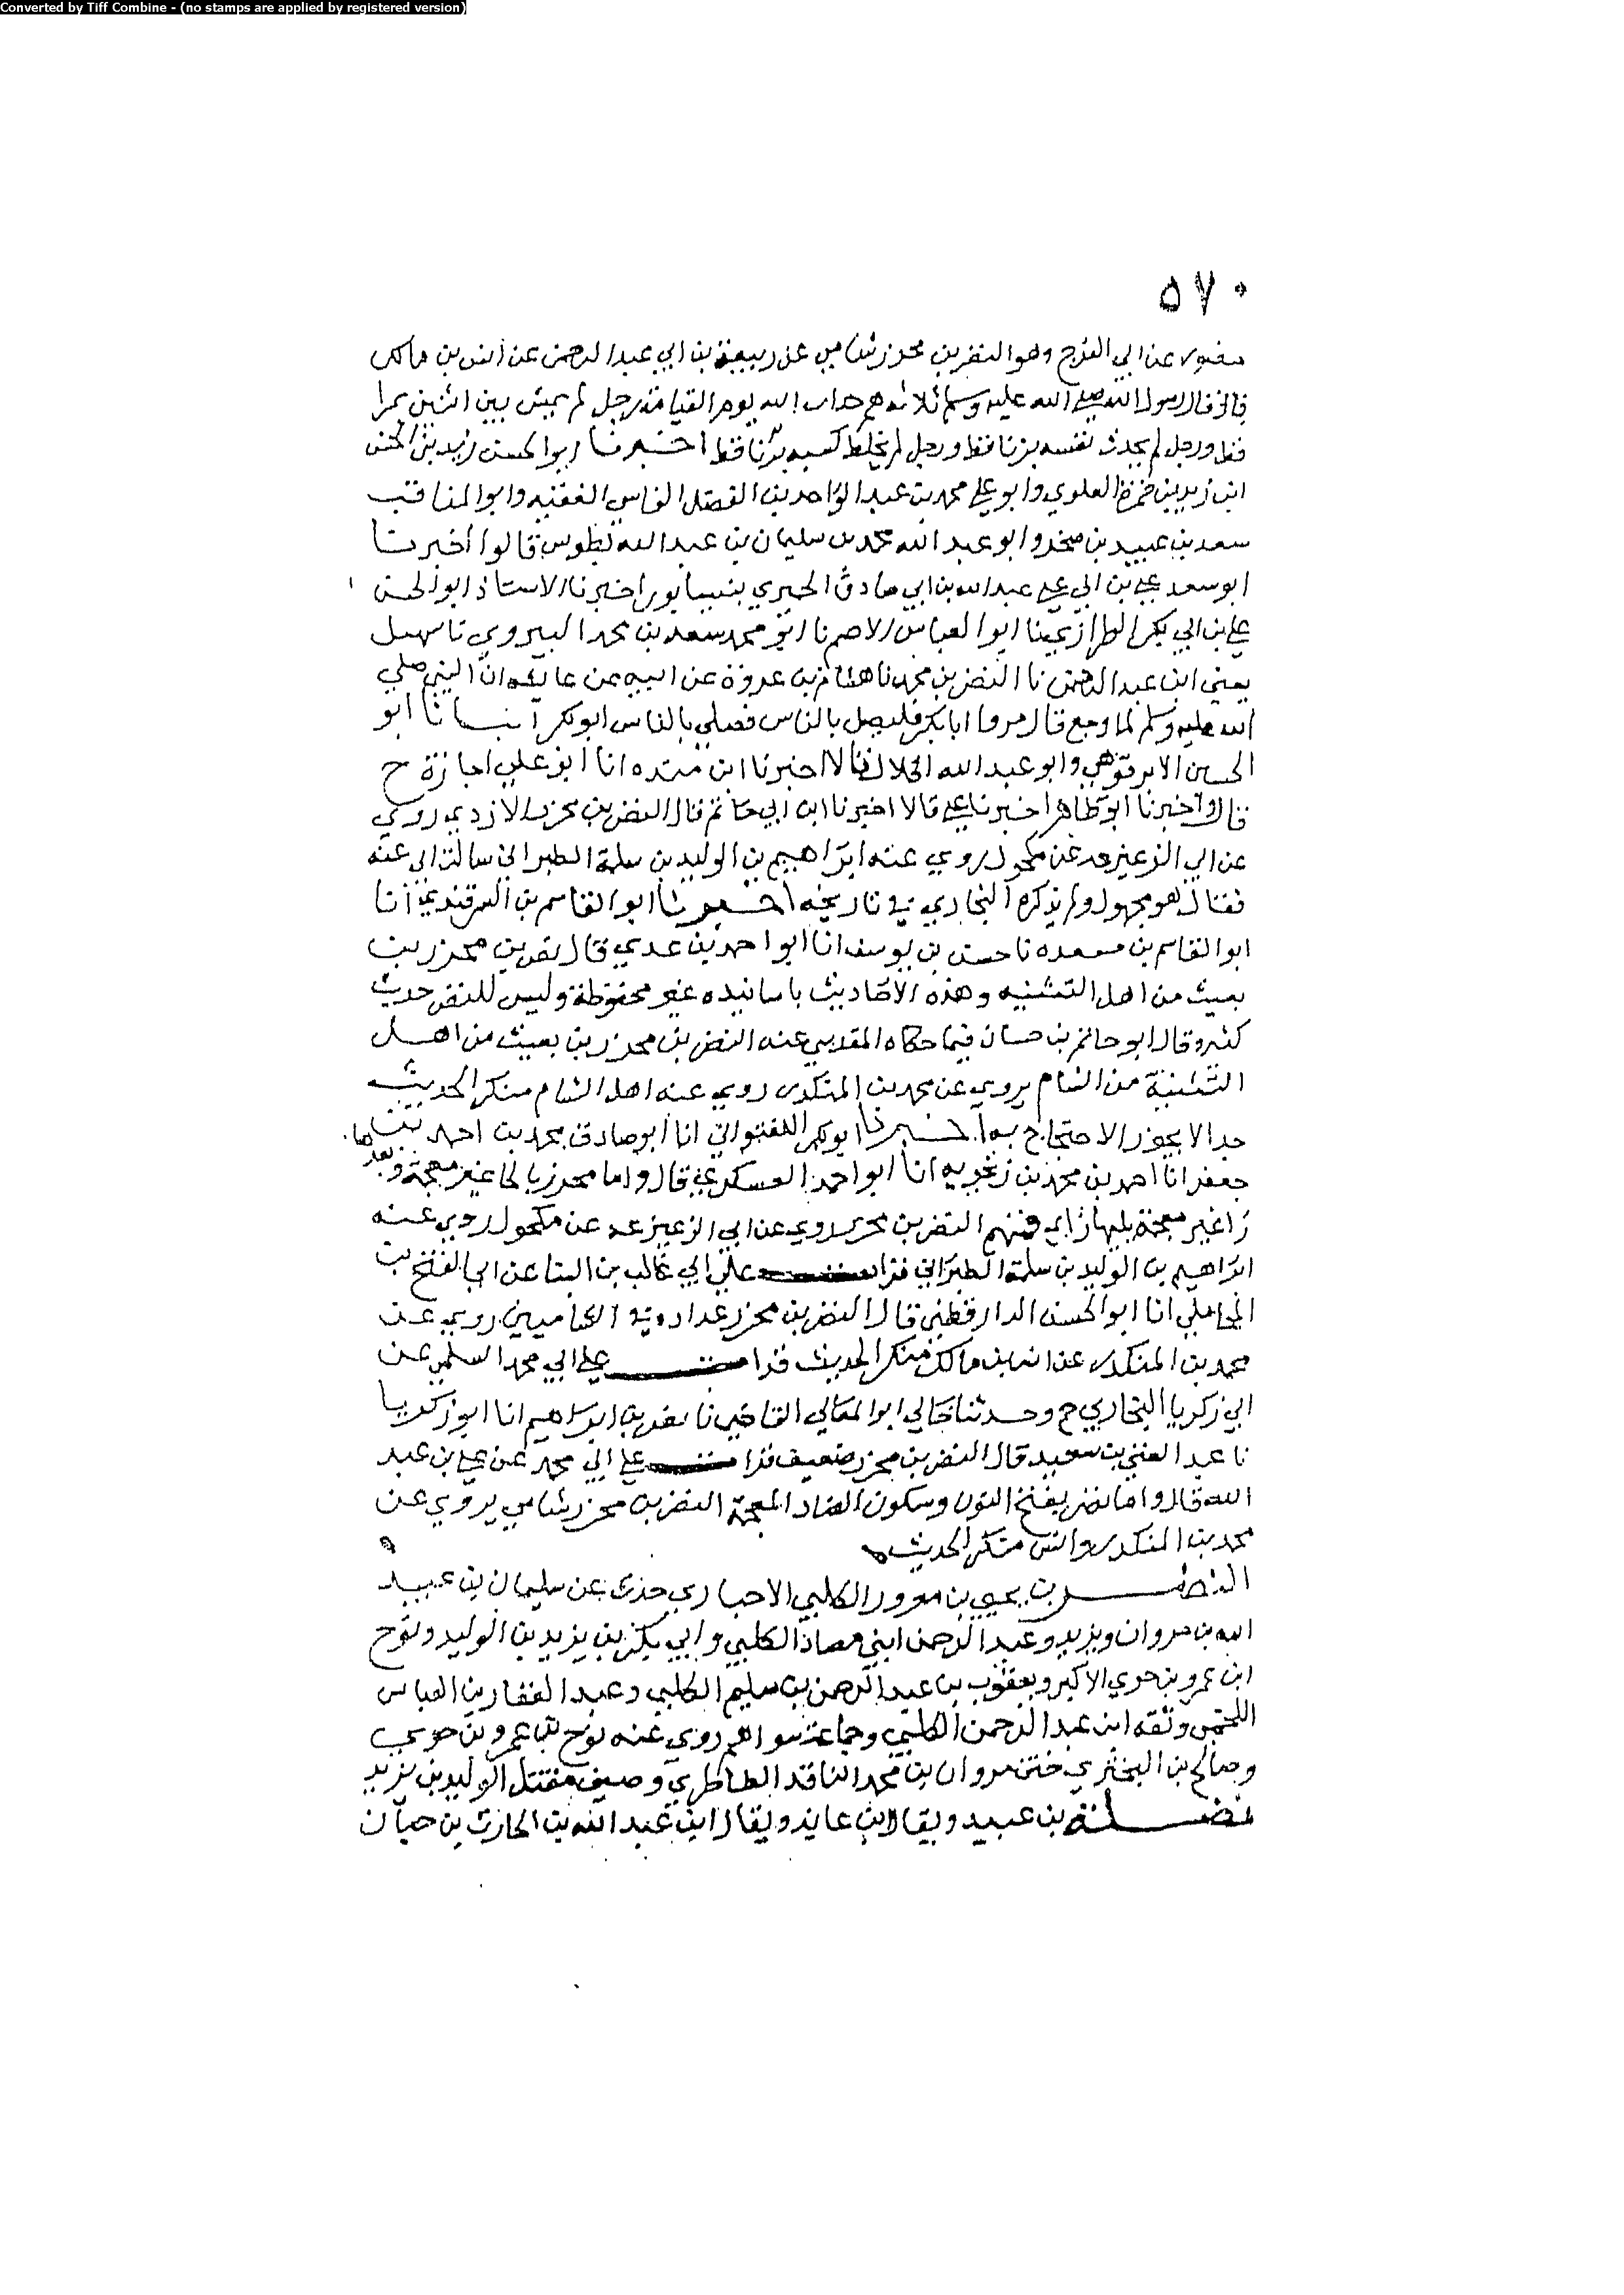 Converted by Tiff Combine - (no stamps are applied by registered version)
٥٧٠
عن ابي الفرج وهو النضر بن محرز شامي عن ربيعة بن ابي عبد الرحمن عن انس بن مالك
قال قال رسول الله صلى الله عليه وسلم ثلاثة هم حداث الله يوم القيامة رجل لم يمش بين اثنين بمرا
قط ورجل لم يحدث نفسه بزنا قط ورجل لم يخلط كسبه بربا قط اخبرنا ابو الحسن زيد بن الحسن
ابن زيد بن حمزة العلوي وابو علي محمد بن عبد الواحد بن الفضل الفقيه وابو المناقب
سعد بن عبيد بن صخر وابو عبد الله محمد بن سليمان بن عبد الله بطوس قالوا اخبرنا
ابو سعد علي بن ابي علي عبد الله بن ابي صادق الحيري بنيسابور اخبرنا الاستاذ ابو الحسن
علي بن ابي بكر الطرازي نا ابو العباس الاصم نا ابو محمد سعد بن محمد البيروتي نا سهل
يعني ابن عبد الرحمن نا النضر بن محرز نا هشام بن عروة عن ابيه عن عايشه ان النبي صلى
الله عليه وسلم لما وجع قال مروا ابا بكر فليصل بالناس فصلى بالناس ابو بكر انبانا ابو
الحسين الابرقوهي وابو عبد الله الخلال قالا اخبرنا ابن منده انا ابو علي اجازة ح
قال واخبرنا ابو طاهر اخبرنا علي قالا اخبرنا ابن ابي حاتم قال النضر بن محرز الازدي روى
عن ابي الزعيزعه عن مكحول روي عنه ابراهيم بن الوليد بن سلمة الطبراني سالت ابي عنه
فقال هو مجهول ولم يذكره البخاري في تاريخه اخبرنا ابو القاسم بن السمرقندي انا
ابو القاسم بن مسعده نا حمزه بن يوسف انا ابو احمد بن عدي قال نضر بن محرز بن
بعيث من اهل الثنية وهذه الاحاديث باسانيده غير محفوظة وليس للنضر حديث
كثير وقال ابو حاتم بن حسان فيما حكاه المقدسي عنه النضر بن محرز بن بعيث من اهل
الثنية من الشام يروي عن محمد بن المنكدر روى عنه اهل الشام منكر الحديث
جدا لا يجوز الاحتجاج به اخبرنا ابو بكر اللفتواني انا ابو صادق محمد بن احمد بن
جعفر انا احمد بن محمد بن زنجويه انا ابو احمد العسكري قال واما محرز بالحا غير معجمة وبعدها
را غير معجمة يليها زاي فمنهم النضر بن محرز روى عن ابي الزعيزعه عن مكحول روى عنه
ابراهيم بن الوليد بن سلمة الطبراني قرات على ابي غالب بن البنا عن ابي الفتح بن
المحاملي انا ابو الحسن الدارقطني قال النضر بن محرز عداده في الشاميين روى عن
محمد بن المنكدر عن انس بن مالك منكر الحديث قرات على ابي محمد السلمي عن
ابي زكريا البخاري ح وحدثنا خالي ابو المعالي القاضي نا نصر بن ابراهيم انا ابو زكريا
نا عبد الغني بن سعيد قال النضر بن محرز ضعيف قرات على ابي محمد عن علي بن هبة
الله قال واما نضر بفتح النون وسكون الضاد المعجمة النضر بن محرز شامي يروي عن
محمد بن المنكدر وانس منكر الحديث ه
النضر بن يحيى بن معرور الكلبي الاخباري حدث عن سليمان بن عبيد
الله بن مروان ويزيد وعبد الرحمن ابني مصاد الكلبي وابي بكر بن يزيد بن الوليد ونوح
ابن عمرو بن حوي الاكبر ويعقوب بن عبد الرحمن بن سليم الكلبي وعبد الغفار بن العباس
اللخمي وثقه ابن عبد الرحمن الكلبي وجماعة سواهم روى عنه نوح بن عمرو بن حوي
وصالح بن البختري ختن مروان بن محمد الناقد الطاطري وصنف مقتل الوليد بن يزيد
نضلة بن عبيد ويقال ابن عايذ ويقال ابن عبد الله بن الحارث بن حبان